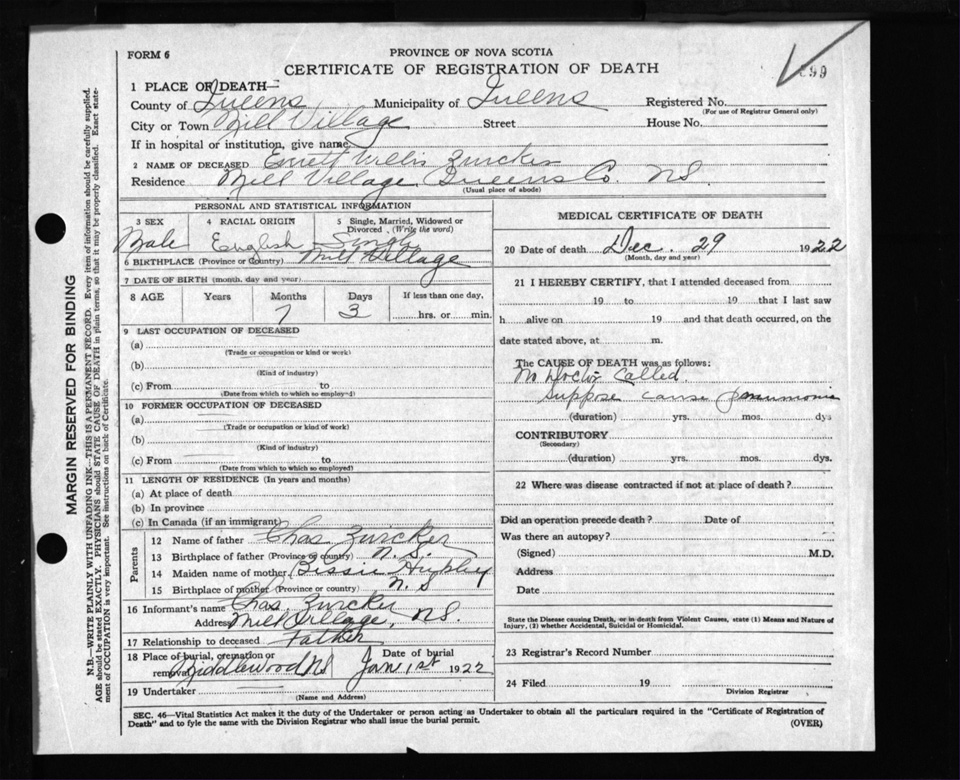 FORM 6
PROVINCE OF NOVA SCOTIA
CERTIFICATE OF REGISTRATION OF DEATH
99
1 PLACE OF DEATH
County of Queens Municipality of Queens Registered No.
(For use of Registrar General only)
City or Town Mill Village Street House No.
If in hospital or institution, give name
2 NAME OF DECEASED Willis Zwicker
Residence Mill Village Queens Co. NS.
(Usual place of abode)
PERSONAL AND STATISTICAL INFORMATION
3 SEX 4 RACIAL ORIGIN 5 Single, Married, Widowed or Divorced (Write the word)
Male English Single
6 BIRTHPLACE (Province or Country) Mill Village
7 DATE OF BIRTH (month, day and year)
8 AGE Years Months Days If less than one day,
7 3 hrs. or min.
9 LAST OCCUPATION OF DECEASED
(a)
(Trade or occupation or kind or work)
(b)
(Kind of industry)
(c) From to
(Date from which to which so employed)
10 FORMER OCCUPATION OF DECEASED
(a)
(Trade or occupation or kind of work)
(b)
(Kind of industry)
(c) From to
(Date from which to which so employed)
11 LENGTH OF RESIDENCE (In years and months)
(a) At place of death
(b) In province
(c) In Canada (if an immigrant)
Parents
12 Name of father Chas Zwicker
13 Birthplace of father (Province or country) N.S.
14 Maiden name of mother Bessie
15 Birthplace of mother (Province or country) N.S
16 Informant's name Chas. Zwicker
Address Mill Village, NS.
17 Relationship to deceased Father
18 Place of burial, cremation or removal Middlewood NS Date of burial Jan 1st 1922
19 Undertaker
(Name and Address)
MEDICAL CERTIFICATE OF DEATH
20 Date of death Dec. 29 1922
(Month, day and year)
21 I HEREBY CERTIFY, that I attended deceased from
19 to 19 that I last saw
h alive on 19 and that death occurred, on the
date stated above, at m.
The CAUSE OF DEATH was as follows:
No Doctor Called.
Suppose cause pneumonia
(duration) yrs. mos. dys
CONTRIBUTORY
(Secondary)
(duration) yrs. mos. dys.
22 Where was disease contracted if not at place of death?
Did an operation precede death? Date of
Was there an autopsy?
(Signed) M.D.
Address
Date
State the Disease causing Death, or in death from Violent Causes, state (1) Means and Nature of
Injury, (2) whether Accidental, Suicidal or Homicidal.
23 Registrar's Record Number
24 Filed 19
Division Registrar
SEC. 46—Vital Statistics Act makes it the duty of the Undertaker or person acting as Undertaker to obtain all the particulars required in the "Certificate of Registration of
Death" and to fyle the same with the Division Registrar who shall issue the burial permit.
(OVER)
MARGIN RESERVED FOR BINDING
N.B.—WRITE PLAINLY WITH UNFADING INK—THIS IS A PERMANENT RECORD. Every item of information should be carefully supplied.
AGE should be stated EXACTLY. PHYSICIANS should STATE CAUSE OF DEATH in plain terms, so that it may be properly classified. Exact statement
of OCCUPATION is very important. See instructions on back of Certificate.